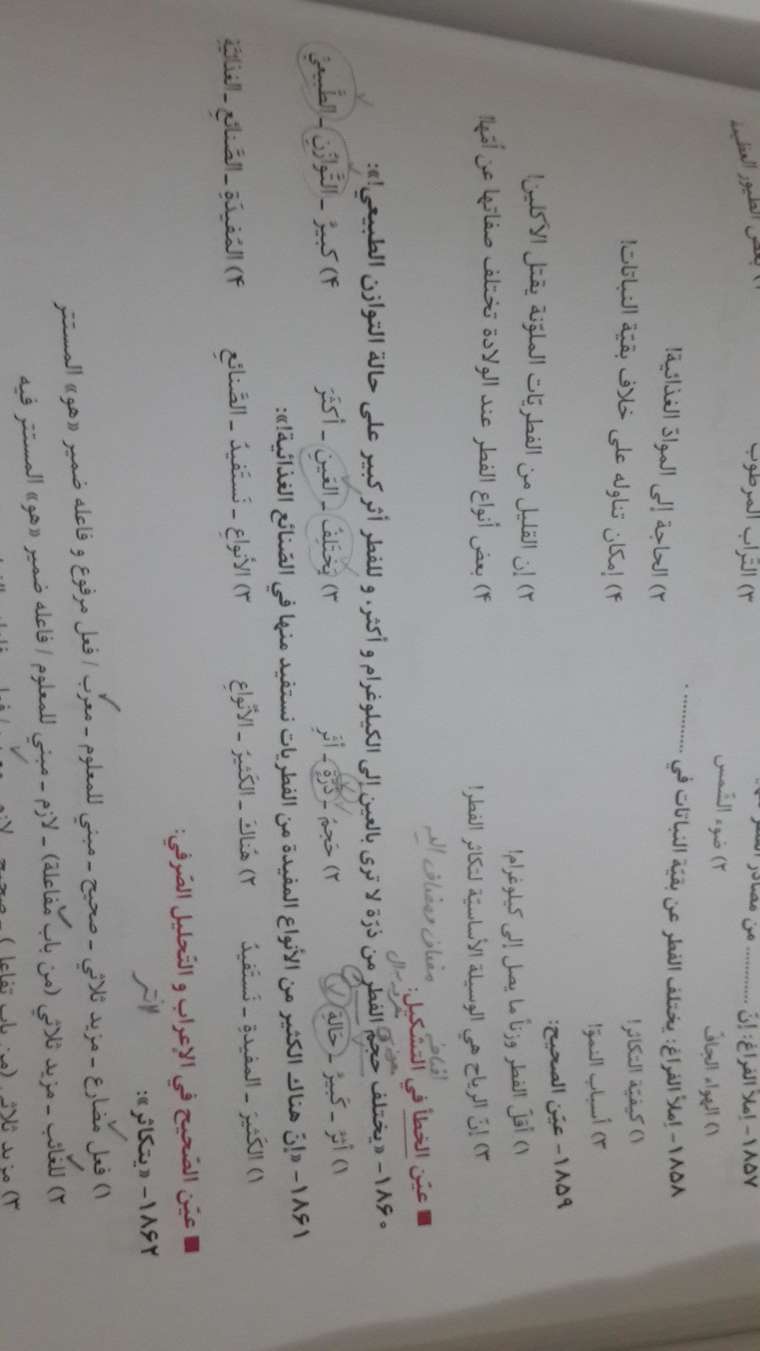 ۱۸۵۷- إملأ الفراغ: إنّ ............ من مصادر
۱) الهواء الجافّ ۲) ضوء الشّمس ۳) التّراب المرطوب
۱۸۵۸- إملأ الفراغ: يختلف الفطر عن بقيّة النباتات في ............ .
۱) كيفيّة التكاثر! ۲) الحاجة إلى الموادّ الغذائية!
۳) أسباب النموّ! ۴) إمكان تناوله على خلاف بقيّة النباتات!
۱۸۵۹- عيّن الصحيح:
۱) أقلّ الفطر وزناً ما يصل إلى كيلوغرام! ۲) إن القليل من الفطريّات الملوّنة يقتل الآكلين!
۳) إنّ الرياح هي الوسيلة الأساسيّة لتكاثر الفطر! ۴) بعض أنواع الفطر عند الولادة تختلف صفاتها عن أمّها!
مضاف ومضاف اليه
■ عيّن الخطأ في التشكيل:
۱۸۶۰- «يختلف حجم الفطر من ذرّة لا ترى بالعين إلى الكيلوغرام و أكثر، و للفطر أثر كبير على حالة التوازن الطبيعي!»:
۱) أثرٌ - كبيرٌ - حالة ۲) حَجمُ - ذرّةٍ - أثر ۳) يَختَلِفُ - العَينِ - أكثَرَ ۴) كبيرٌ - التَّوازُنِ - الطَّبيعيّ
۱۸۶۱- «إنّ هناك الكثير من الأنواع المفيدة من الفطريات نستفيد منها في الصّنائع الغذائية!»:
۱) الكَثيرَ - المفيدةِ - نَستَفيدُ ۲) هُناكَ - الكَثيرَ - الأنواعِ ۳) الأنواعِ - نَستَفيدُ - الصَّنائعِ ۴) المُفيدَةِ - الصَّنائعِ - الغذائيّة
■ عيّن الصّحيح في الإعراب و التّحليل الصّرفي:
۱۸۶۲- «يتكاثر»:
۱) فعل مضارع - مزيد ثلاثي - صحيح - مبني للمعلوم - معرب / فعل مرفوع و فاعله ضمير «هو» المستتر
۲) للغائب - مزيد ثلاثي (من باب مفاعلة) - لازم - مبني للمعلوم / فاعله ضمير «هو» المستتر فيه
۳) مزيد ثلاثي (من باب تفاعل) - صحيح - لازم